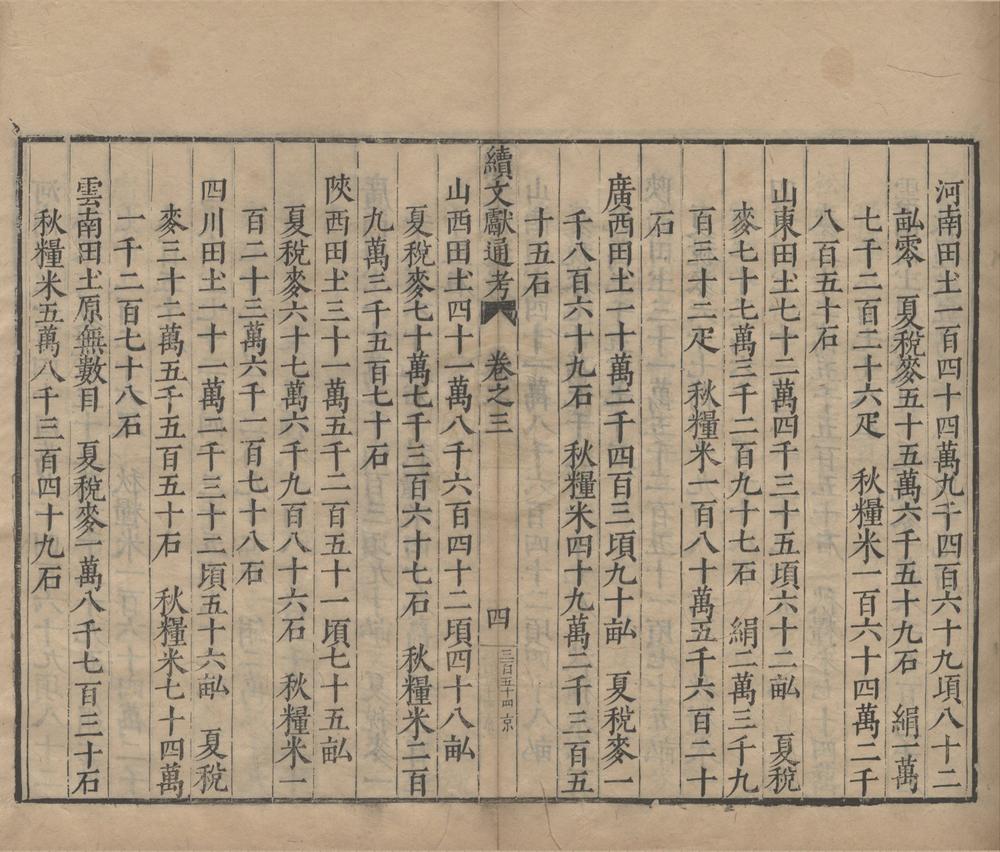 河南田土一百四十四萬九千四百六十九頃八十二
畝零 夏稅麥五十五萬六千五十九石 絹一萬
七千二百二十六疋 秋糧米一百六十四萬二千
八百五十石
山東田土七十二萬四千三十五頃六十二畝 夏稅
麥七十七萬三千二百九十七石 絹二萬三千九
百三十二疋 秋糧米一百八十萬五千六百二十
石
廣西田土一十萬二千四百三頃九十畝 夏稅麥一
千八百六十九石 秋糧米四十九萬二千三百五
十五石
續文獻通考 卷之三 四 三百五十四 京
山西田土四十一萬八千六百四十二頃四十八畝
夏稅麥七十萬七千三百六十七石 秋糧米二百
九萬三千五百七十石
陝西田土三十一萬五千二百五十一頃七十五畝
夏稅麥六十七萬六千九百八十六石 秋糧米一
百二十三萬六千一百七十八石
四川田土一十一萬二千三十二頃五十六畝 夏稅
麥三十二萬五千五百五十石 秋糧米七十四萬
一千二百七十八石
雲南田土原無數目 夏稅麥一萬八千七百三十石
秋糧米五萬八千三百四十九石